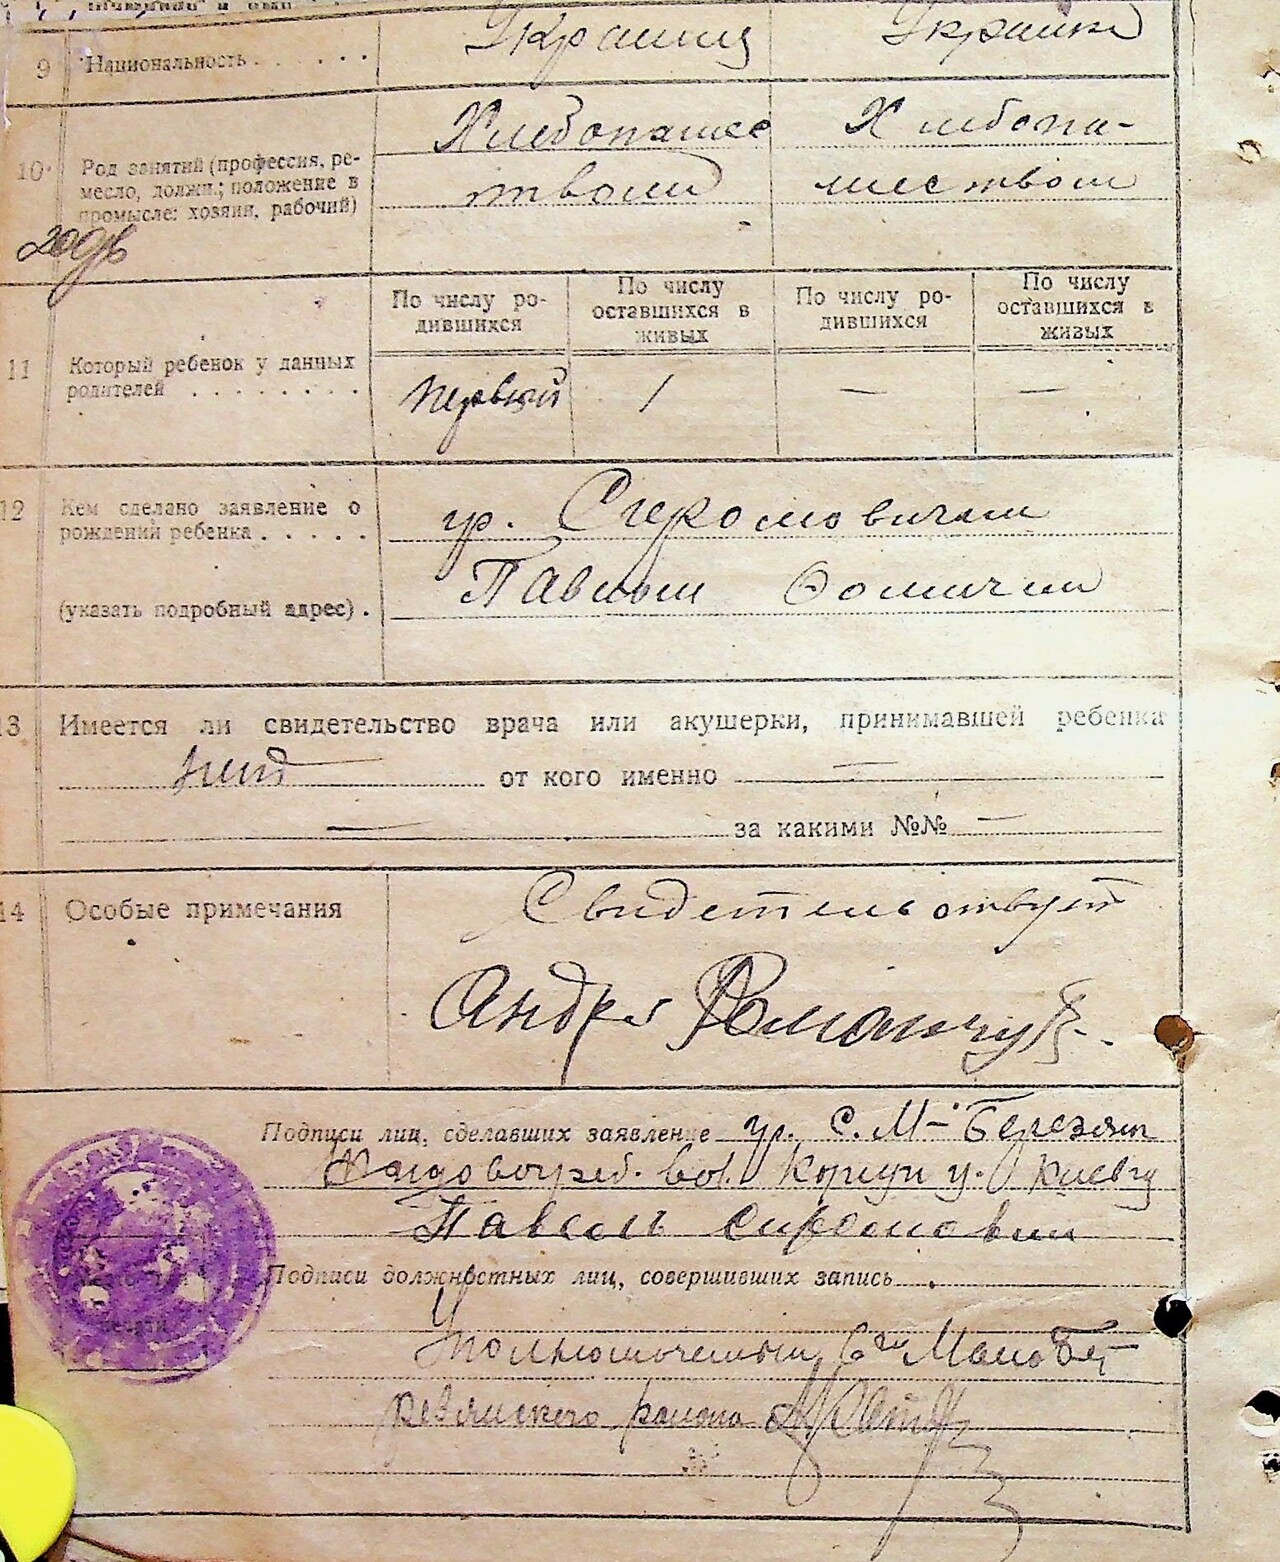 9 Национальность . . . . . . Украинц Украинк
10. Род занятий (профессия, ре-
месло, должн.; положение в
промысле: хозяин, рабочий)
Хлебопашес
твом
Хлебопа-
шеством
11 Который ребенок у данных
родителей . . . . . . . .
По числу ро-
дившихся
По числу
оставшихся в
живых
По числу ро-
дившихся
По числу
оставшихся в
живых
первый 1 — —
12 Кем сделано заявление о
рождений ребенка . . . . .
(указать подробный адрес) .
гр.
Павлом Фомичем
13 Имеется ли свидетельство врача или акушерки, принимавшей ребенка
нет — от кого именно —
— за какими №№ —
14 Особые примечания
Свидетельствует
Андрей Романчук.
Подписи лиц, сделавших заявление гр. С. М-Березян
вол. Корсун у. Киевщ
Павель
Подписи должностных лиц, совершивших запись .
Уполномоченный Мало Бе
резянского района